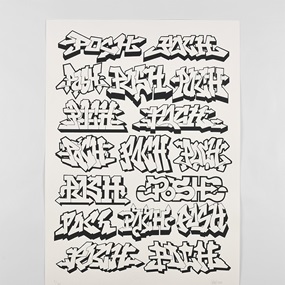 POSH POSH
POSH POSH POSH
POSH POSH
POSH POSH POSH
POSH POSH
POSH POSH POSH
POSH POSH